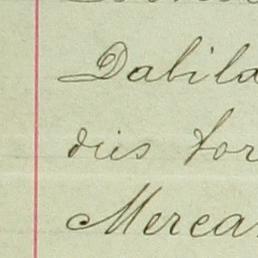 Dalila
dris for
Merca